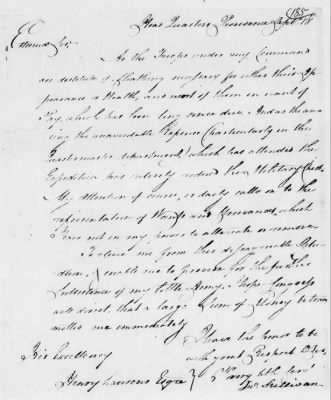 135
Head Quarters Providence Sept 18
Esteemed Sir,
As the Troops under my Command
are destitute of Cloathing necessary for either their Ap
pearance or Health, and most of them in want of
Pay which has been long since due. And as the
the unavoidable Expence (particularly in the
Quartermasters department) which has attended the
Expedition has entirely reduced the Military Chest
My attention of course, is daily called on to the
representation of Wants and Grievances, which
I have not in my power to alleviate or remove.
To relieve me from this disagreeable
& enable me to provide for the further
Subsistence of my little Army, I hope Congress
will direct, that a large Sum of Money be trans
mitted me immediately
I have the honor to be
with great Respect
His Excellency
Henry Laurens Esqre
Your Excy
Jno Sullivan